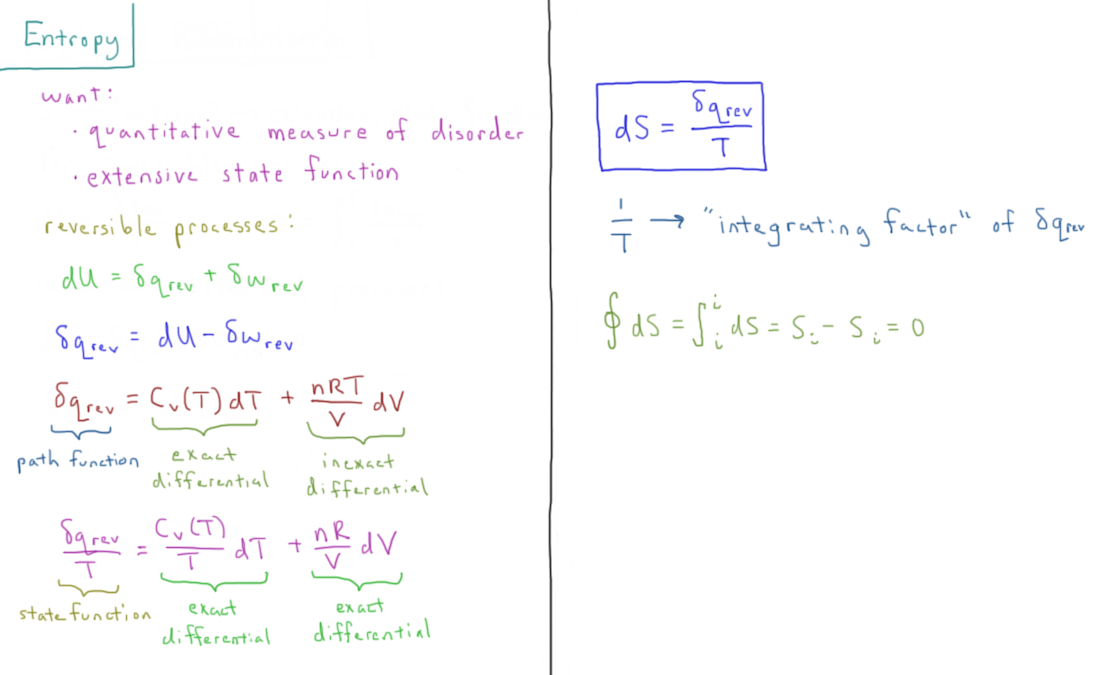 Entropy
want:
· quantitative measure of disorder
· extensive state function
reversible processes:
dU = δq_rev + δw_rev
δq_rev = dU - δw_rev
δq_rev = C_v(T) dT + nRT/V dV
path function exact differential inexact differential
δq_rev/T = C_v(T)/T dT + nR/V dV
state function exact differential exact differential
dS = δq_rev/T
1/T → "integrating factor" of δq_rev
∮ dS = ∫_i^i dS = S_i - S_i = 0